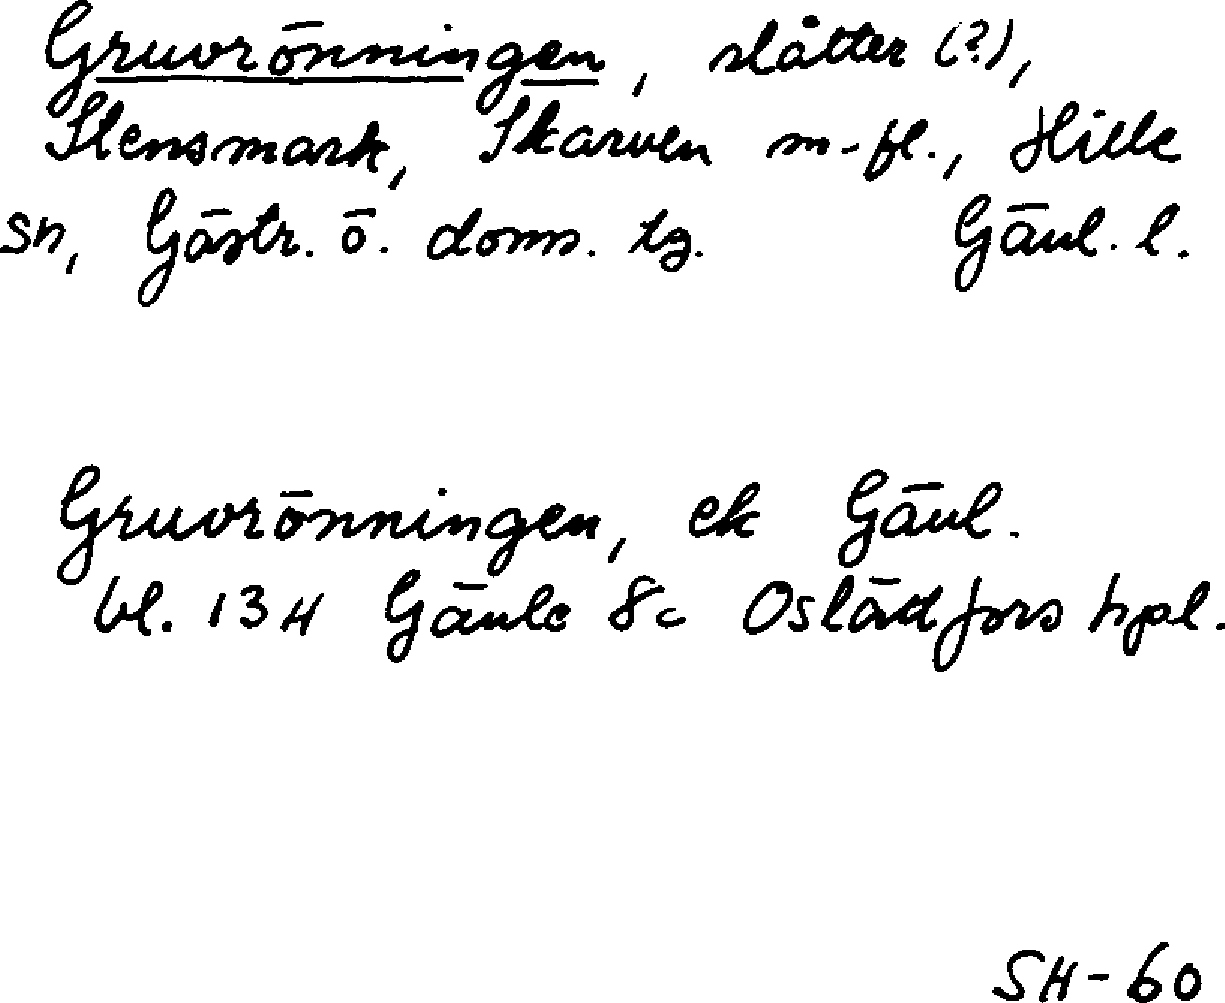 Gruvrönningen, slåtter (?),
Stensmark, Skarven m.fl., Hille
sn, Gästr. ö. doms. tg. Gävl. l.
Gruvrönningen, ek Gävl.
bl. 13H Gävle 8c Oslättfors hpl.
SH-60